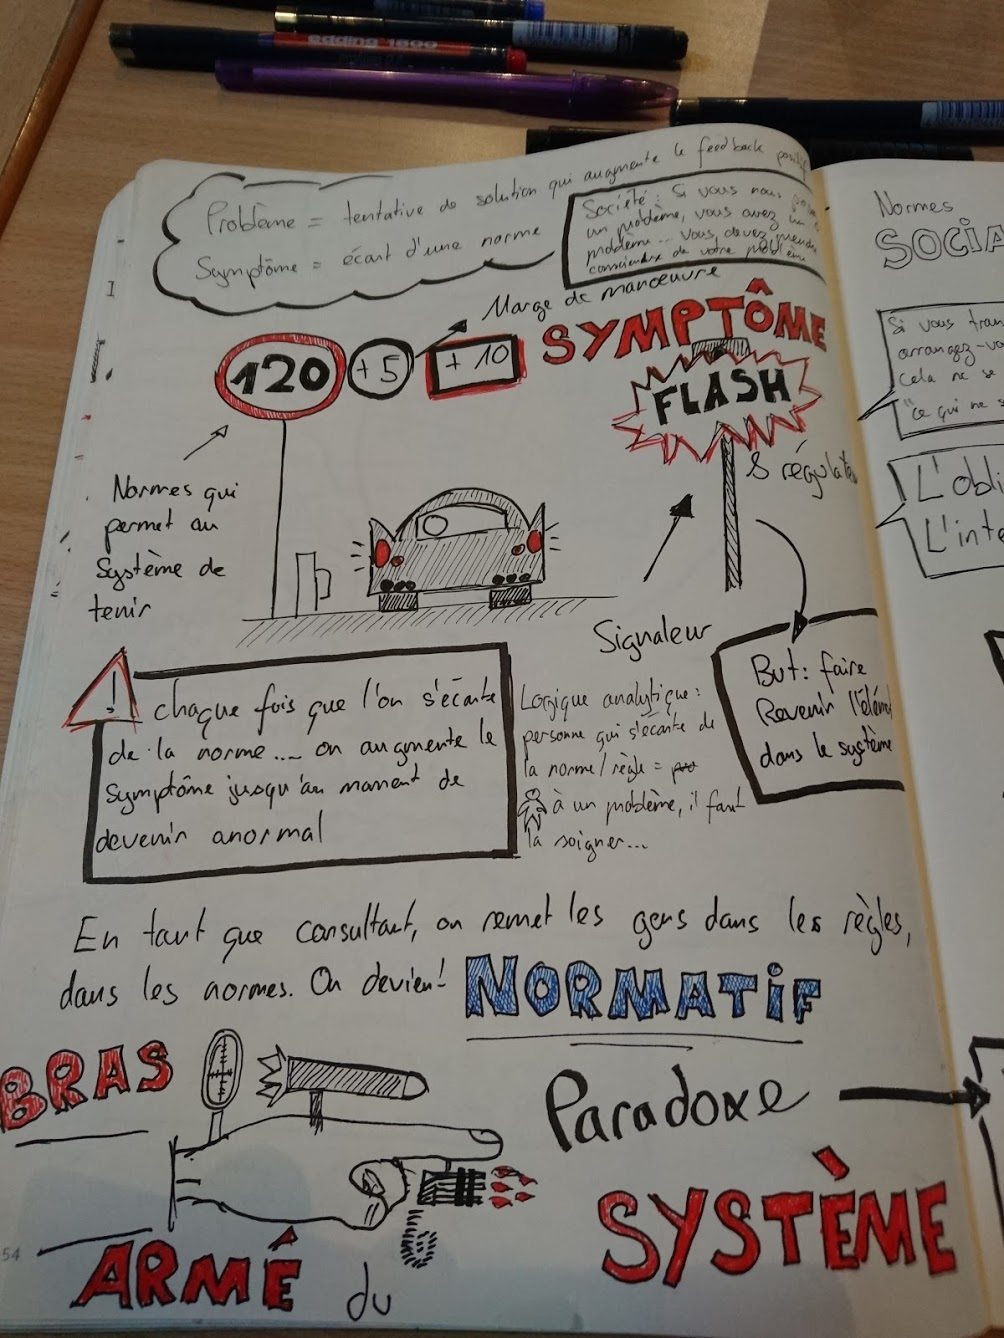 edding 1800
Problème = tentative de solution qui augmente le feedback positif
Symptôme = écart d'une norme
Société : Si vous nous
un problème, vous avez un
problème... vous devez prendre
conscience de votre problème
Marge de manœuvre
SYMPTÔME
120
+5
+10
FLASH
Normes qui
permet au
système de
tenir
Signaleur
But: faire
Revenir l'élément
dans le système
! chaque fois que l'on s'écarte
de la norme... on augmente le
symptôme jusqu'au moment de
devenir anormal
Logique analytique:
personne qui s'écarte de
la norme/règle =
à un problème, il faut
la soigner...
En tant que consultant, on remet les gens dans les règles,
dans les normes. On devient NORMATIF
BRAS
ARMÉ du
Paradoxe
SYSTÈME
54
Normes
SOCIA
Si vous tran
arrangez-vo
Cela ne se
"Ce qui ne s
L'obli
L'inte